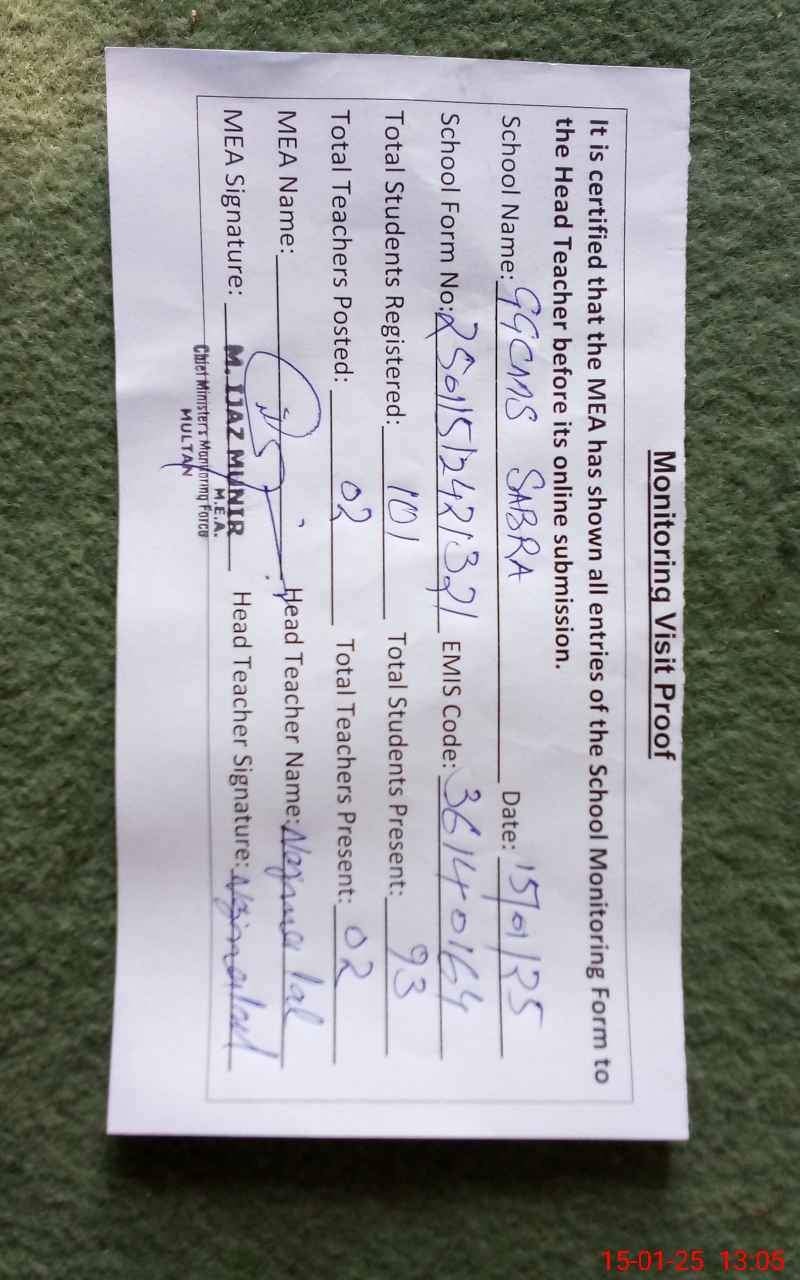 Monitoring Visit Proof
It is certified that the MEA has shown all entries of the School Monitoring Form to
the Head Teacher before its online submission.
School Name: GGCMS SABRA Date: 15/01/25
School Form No: 25011512421321 EMIS Code: 36140164
Total Students Registered: 101 Total Students Present: 93
Total Teachers Posted: 02 Total Teachers Present: 02
MEA Name: Head Teacher Name:
MEA Signature: Head Teacher Signature:
M. IJAZ MUNIR
M.E.A.
Chief Minister's Monitoring Force
MULTAN
15-01-25 13:05